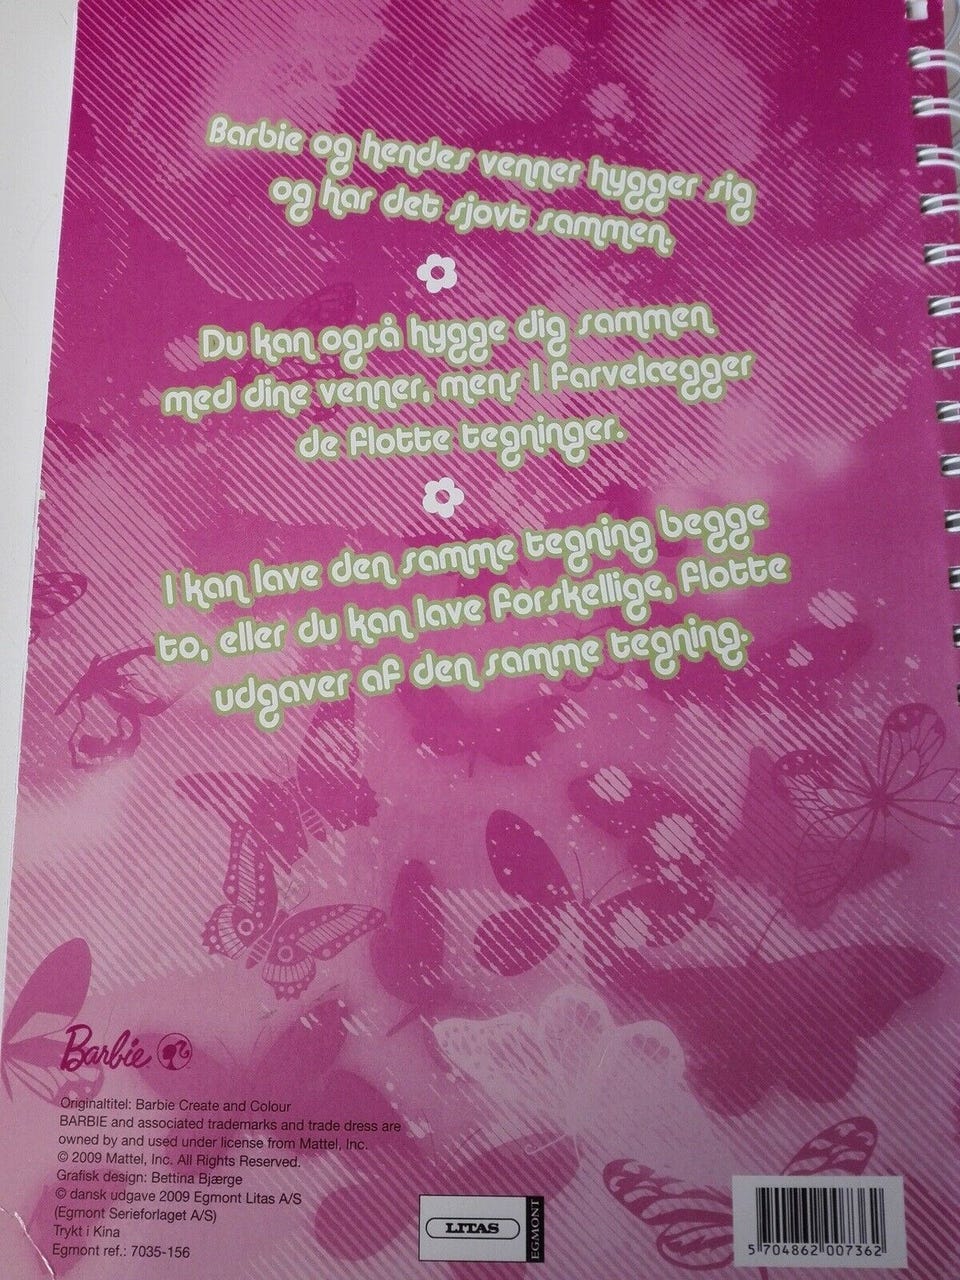 Barbie og hendes venner hygger sig
og har det sjovt sammen.
Du kan også hygge dig sammen
med dine venner, mens I farvelægger
de flotte tegninger.
I kan lave den samme tegning begge
to, eller du kan lave forskellige, flotte
udgaver af den samme tegning.
Barbie
Originaltitel: Barbie Create and Colour
BARBIE and associated trademarks and trade dress are
owned by and used under license from Mattel, Inc.
© 2009 Mattel, Inc. All Rights Reserved.
Grafisk design: Bettina Bjærge
© dansk udgave 2009 Egmont Litas A/S
(Egmont Serieforlaget A/S)
Trykt i Kina
Egmont ref.: 7035-156
LITAS
EGMONT
5 704862 007362